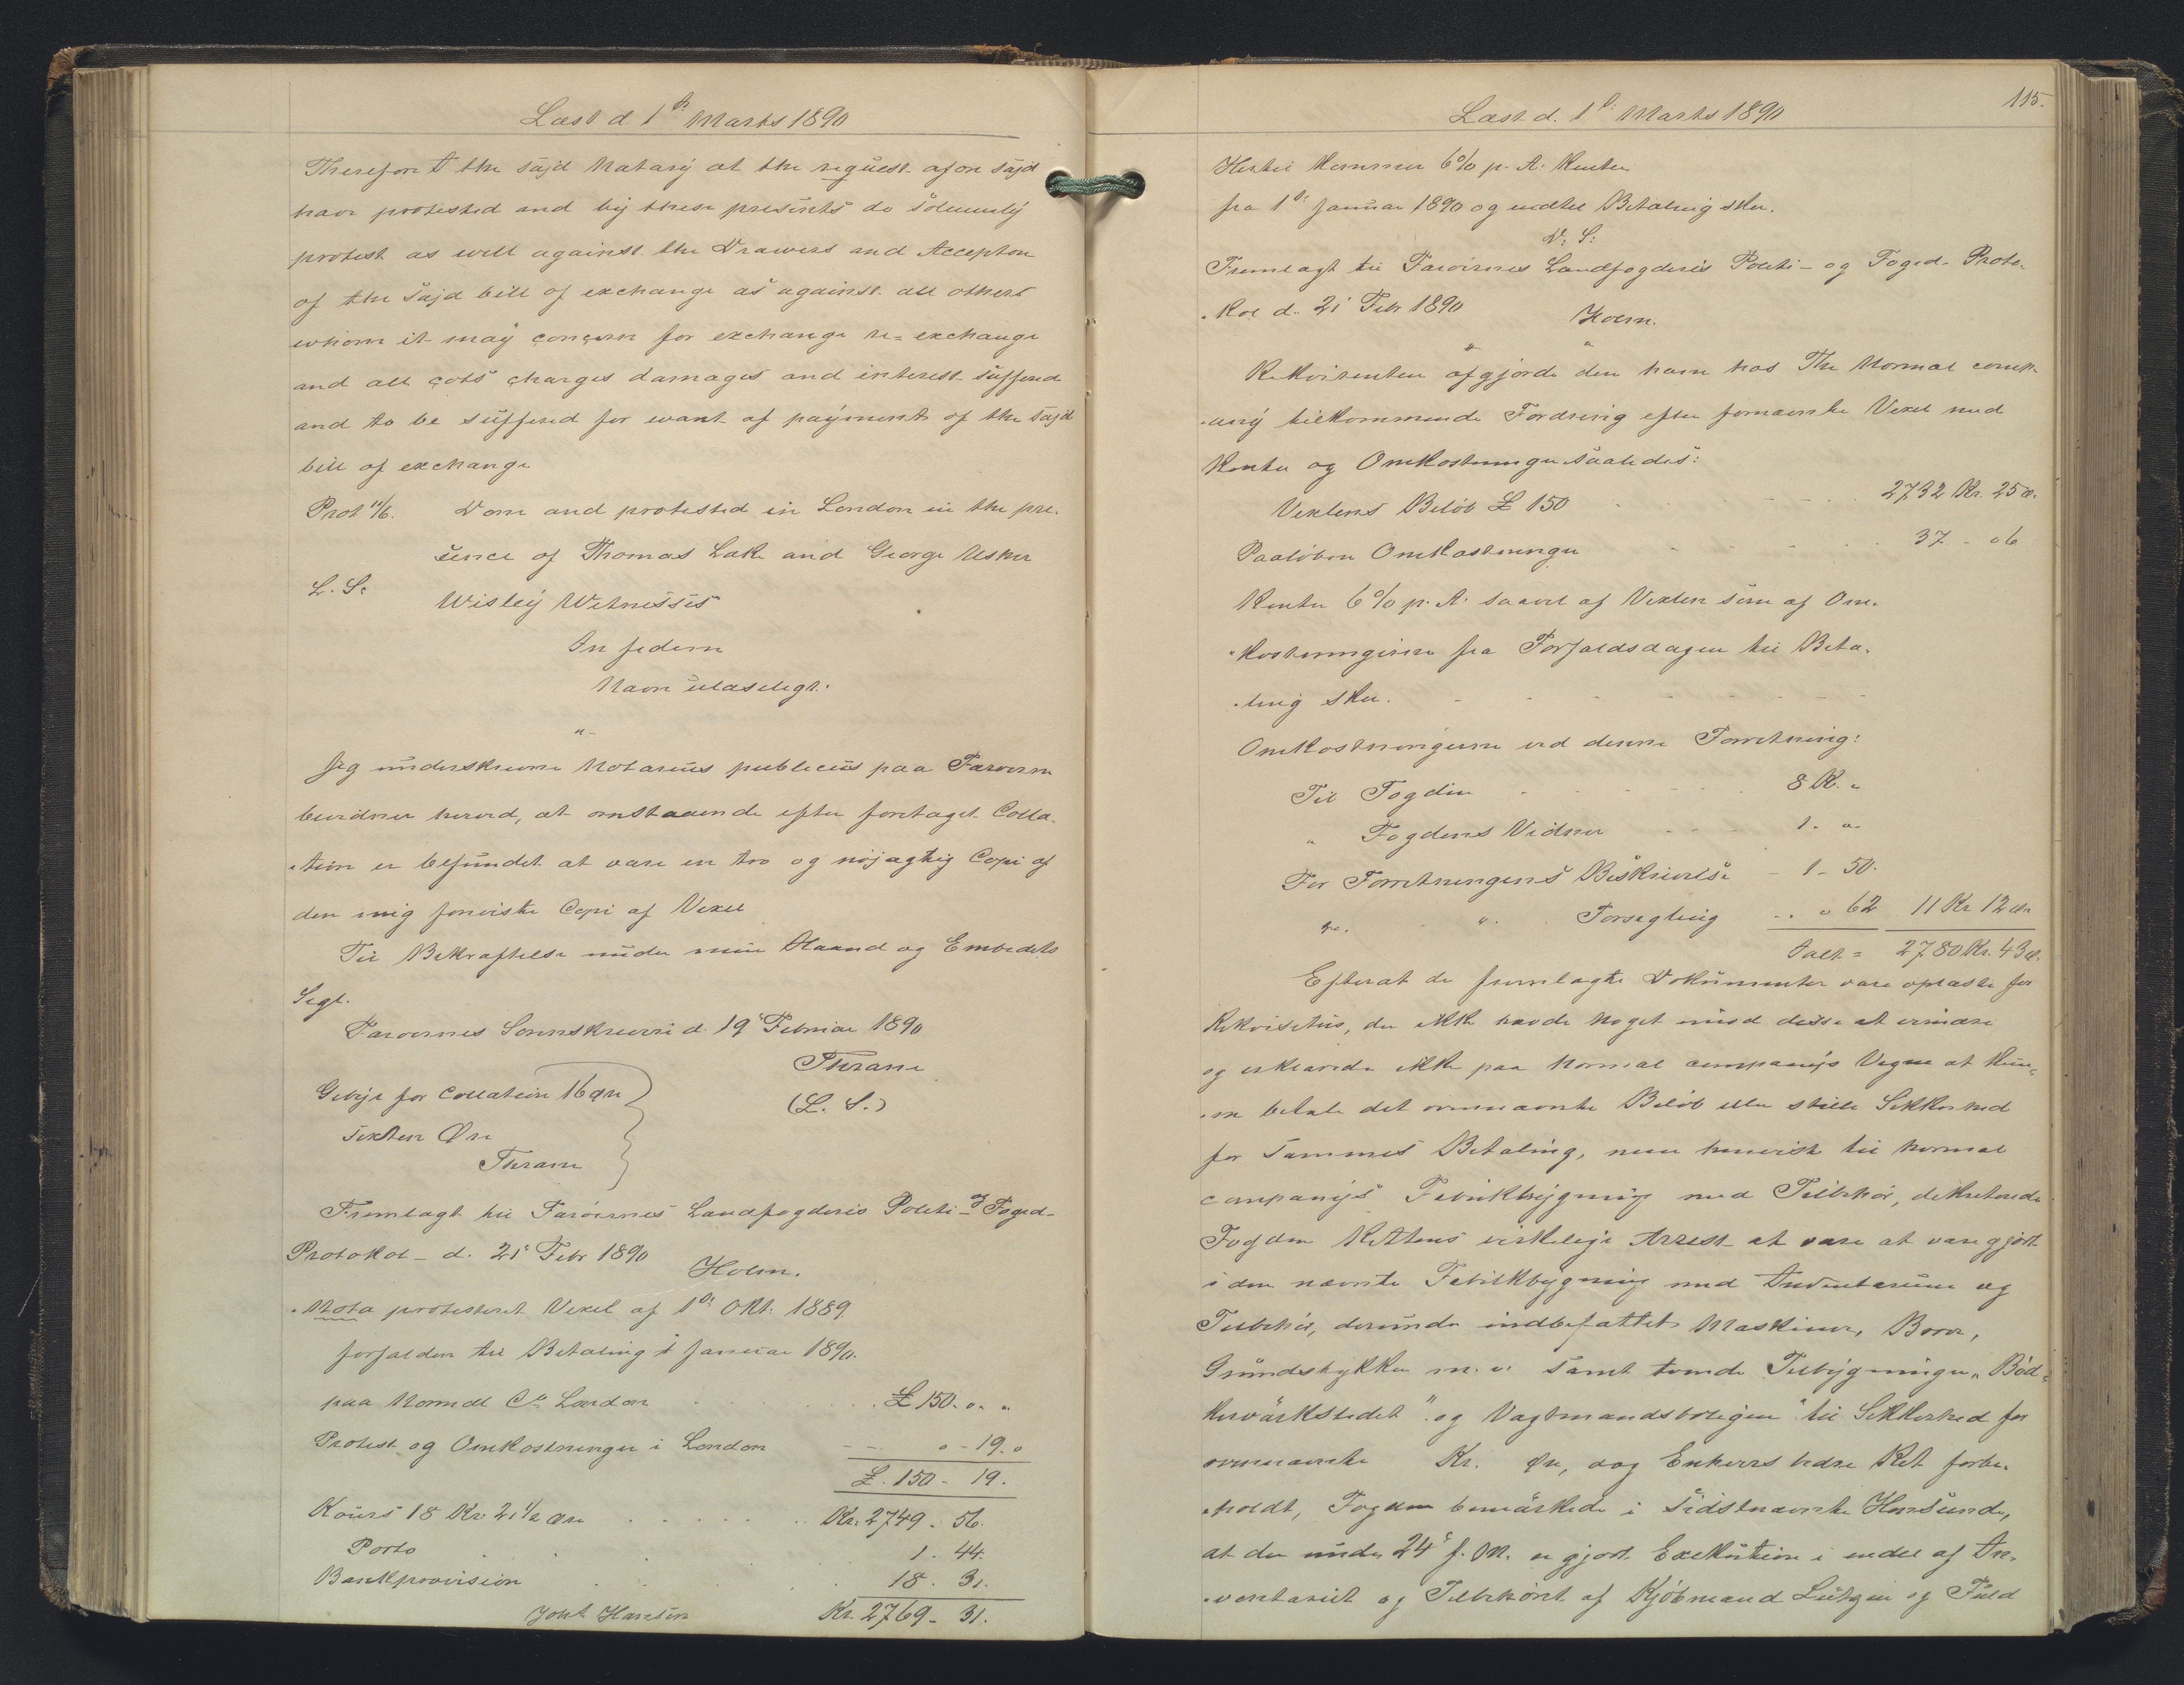 Læst d 1ste Marts 1890
Therefore I the sajd Notarÿ at the request afore sajd
have protested and bÿ these presents do solemnlÿ
protest as well against the Drawers and Acceptore
of the sajd bill of exchange as against all others
whom it maÿ conçern for exchange re-exchange
and all çots çharges damages and interest suffered
and to be suffered for want of paÿments of the sajd
bill of exchange
Prot 11/6. Done and protested in London in the pre-
sence of Thomas Lake and George Usher
L. S. Wisleÿ Witnesses
In fedem
Navn ulæseligt.
"-
Jeg underskrevne Notarius publicus paa Færøerne
bevidner herved, at omstaaende efter foretaget Colla-
-tion er befundet at være en tro og nöjagtig Copi af
den mig foreviste Copi af Vexel
Til Bekræftelse under min Haand og Embedets
Segl.
Færøernes Sorenskriveri d. 19 Februar 1890
Thrane
Gebyr for Collation 16 Øre (L. S.)
sexten Øre
Thrane
Fremlagt til Færöernes Landfogderis Politi- og Foged-
Protokol d. 21 Febr 1890
Holm.
Nota protesteret Vexel af 1ste Okt. 1889
forfalden til Betaling 1 Januar 1890.
paa Normal Co London £ 150. " "
Protest og Omkostninger i London " - 19. "
£. 150 - 19.
Kours 18 Kr. 21 1/2 Øre Kr. 2749. 56.
Porto 1. 44.
Bankprovision 18. 31.
Joht Hansen Kr. 2769. 31.
115.
Læst d. 1ste Marts 1890
Hertil kommer 6% p. A. Renter
fra 1ste Januar 1890 og indtil Betaling sker.
D: S:
Fremlagt til Færöernes Landfogderis Politi- og Foged-Proto-
-kol d. 21 Febr 1890
Holm.
" "
Rekvirenten opgjorde den ham hos The Normal comp-
-anÿ tilkommende Fordring efter fornævnte Vexel med
Renter og Omkostninger saaledes:
Vexlens Beløb £ 150 2732 Kr. 25 Ø.
Paaløbne Omkostninger 37 - 06
Renter 6% p. A. saavel af Vexlen som af Om-
-kostningerne fra Forfaldsdagen til Beta-
-ling sker.
Omkostningerne ved denne Forretning:
Til Fogden 8 K. "
" Fogdens Vidner 1. "
For Forretningens Beskrivelse - 1 - 50.
" " Forsegling " 62 11 Kr 12 Ør
Ialt = 2780 Kr. 43 Ø.
Efterat de fremlagte Dokumenter vare oplæste for
Rekvisitus, der ikke havde noget imod disse at erindre
og erklærede ikke paa Normal companÿs Vegne at kun-
-ne betale det ovennævnte Beløb eller stille Sikkerhed
for Sammes Betaling, men henviste til Normal
companÿs Fabrikbygning med Tilbehör, dekreterede
Fogden Rettens virkelige Arrest at være at være gjort
i den nævnte Fabrikbygning med Inventarium og
Tilbehör, derunder indbefattet Maskiner, Borer,
Grundstykker m. v. samt tvende Tilbygninger "Bød-
kerværkstedet" og Vagtmandsboligen" til Sikkerhed for
ovennævnte Kr. Øre, dog Enhvers bedre Ret forbe-
-holdt, Fogden bemærkede i sidstnævnte Henseende,
at der under 24de f. M. er gjort Exekution i endel af In-
-ventariet og Tilbehöret af Kjøbmand Lützen og Fuld